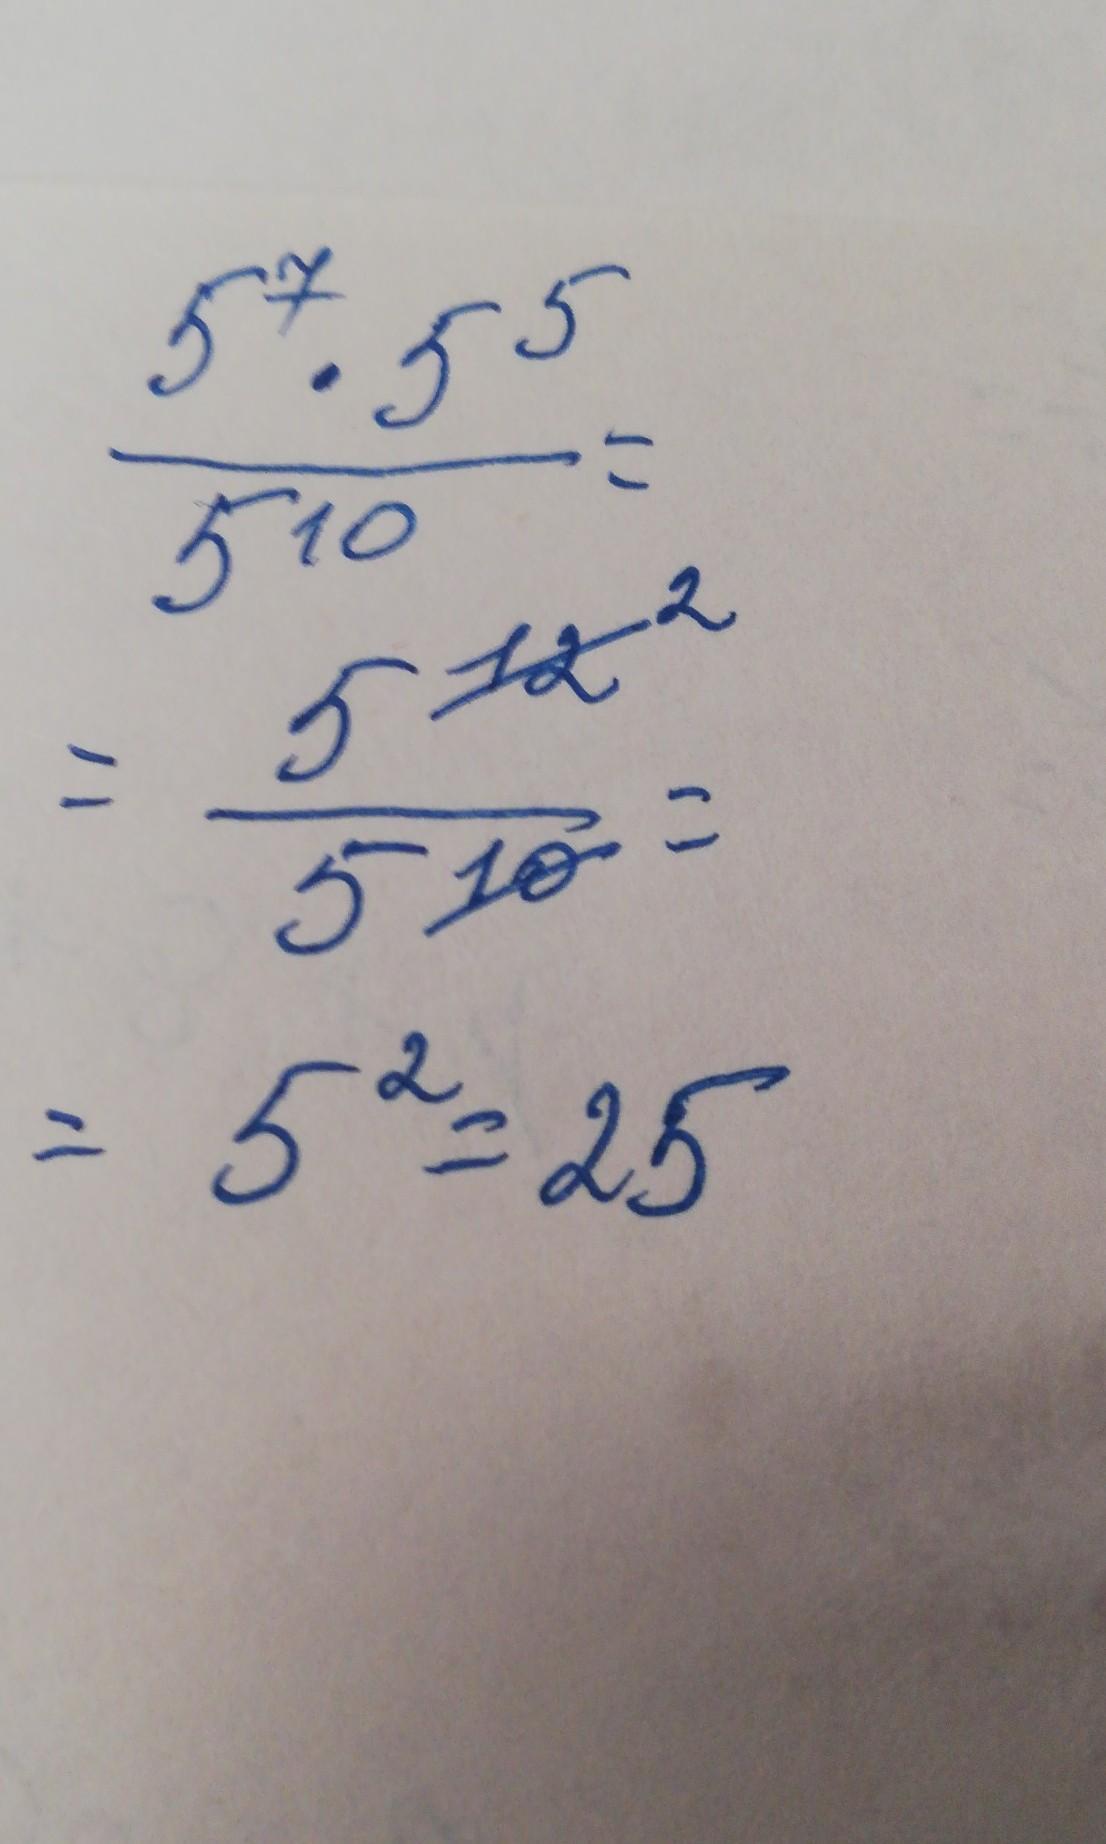 5⁷ · 5⁵
5¹⁰ =
= 5¹² ²
5¹⁰ =
= 5² = 25